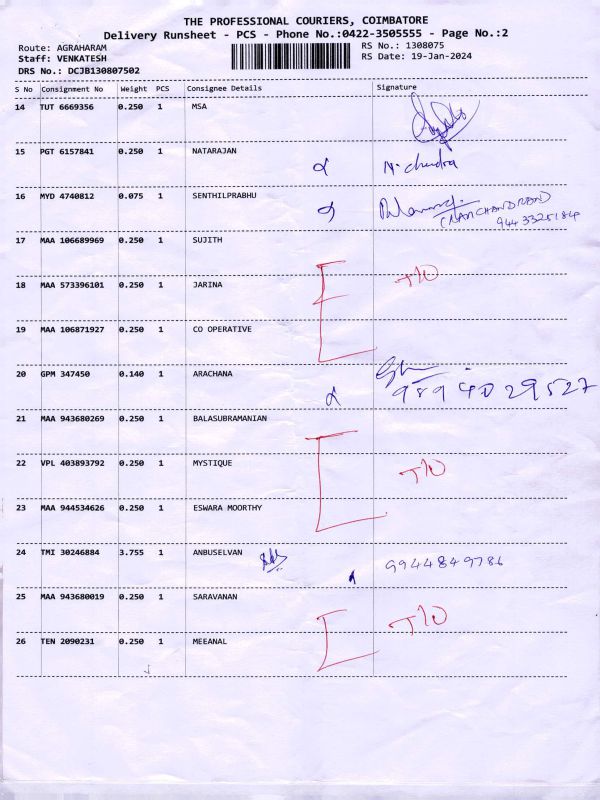 THE PROFESSIONAL COURIERS, COIMBATORE
Delivery Runsheet - PCS - Phone No.:0422-3505555 - Page No.:2
Route: AGRAHARAM RS No.: 1308075
Staff: VENKATESH RS Date: 19-Jan-2024
DRS No.: DCJB130807502
S No Consignment No Weight PCS Consignee Details Signature
14 TUT 6669356 0.250 1 MSA
15 PGT 6157841 0.250 1 NATARAJAN N. chandra
16 MYD 4740812 0.075 1 SENTHILPRABHU
9443325184
17 MAA 106689969 0.250 1 SUJITH
18 MAA 573396101 0.250 1 JARINA T/O
19 MAA 106871927 0.250 1 CO OPERATIVE
20 GPM 347450 0.140 1 ARACHANA 9894029527
21 MAA 943680269 0.250 1 BALASUBRAMANIAN
22 VPL 403893792 0.250 1 MYSTIQUE T/O
23 MAA 944534626 0.250 1 ESWARA MOORTHY
24 TMI 30246884 3.755 1 ANBUSELVAN 9944849786
25 MAA 943680019 0.250 1 SARAVANAN T/O
26 TEN 2090231 0.250 1 MEEANAL